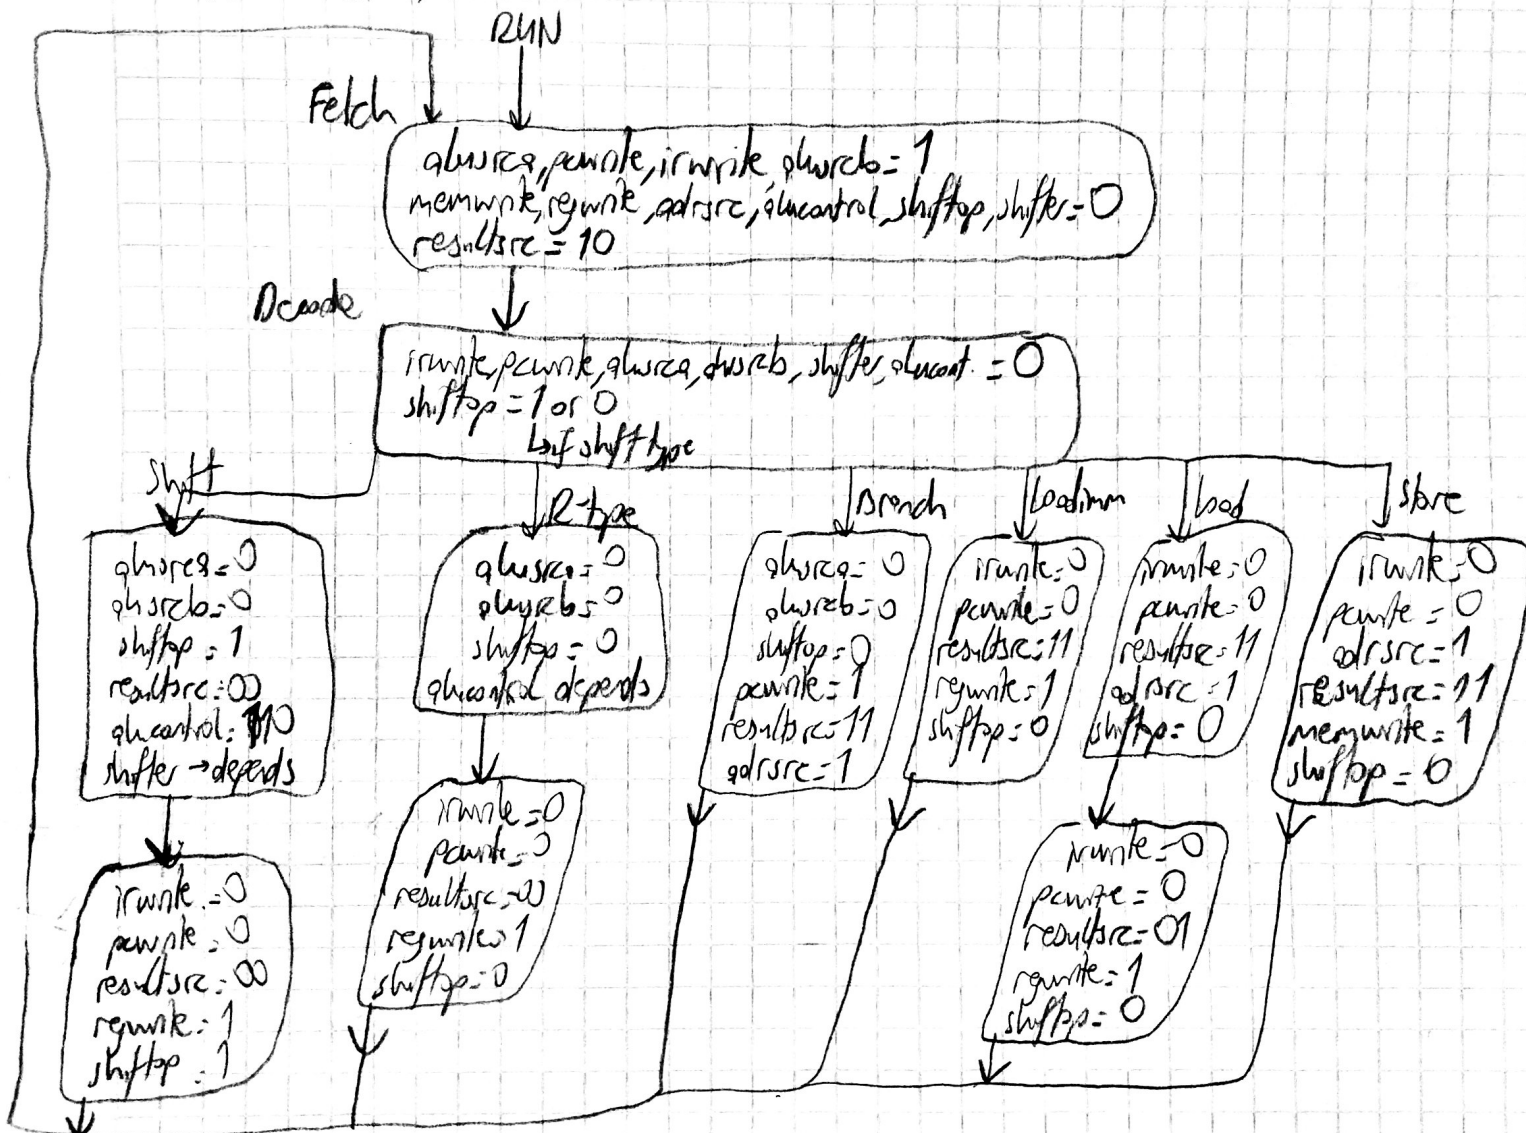 RUN
Fetch
alusrca, pcwrite, irwrite, alusrcb = 1
memwrite, regwrite, adrsrc, alucontrol, shiftop, shifter = 0
resultsrc = 10
Decode
irwrite, pcwrite, alusrca, alusrcb, shifter, alucont. = 0
shiftop = 1 or 0
↳ if shift type
shift
alusrca = 0
alusrcb = 0
shiftop = 1
resultsrc = 00
alucontrol = 110
shifter → depends
irwrite = 0
pcwrite = 0
resultsrc = 00
regwrite = 1
shiftop = 1
R-type
alusrca = 0
alusrcb = 0
shiftop = 0
alucontrol depends
irwrite = 0
pcwrite = 0
resultsrc = 00
regwrite = 1
shiftop = 0
Branch
alusrca = 0
alusrcb = 0
shiftop = 0
pcwrite = 1
resultsrc = 11
adrsrc = 1
Loadimm
irwrite = 0
pcwrite = 0
resultsrc = 11
regwrite = 1
shiftop = 0
load
irwrite = 0
pcwrite = 0
resultsrc = 11
adrsrc = 1
shiftop = 0
irwrite = 0
pcwrite = 0
resultsrc = 01
regwrite = 1
shiftop = 0
store
irwrite = 0
pcwrite = 0
adrsrc = 1
resultsrc = 11
memwrite = 1
shiftop = 0